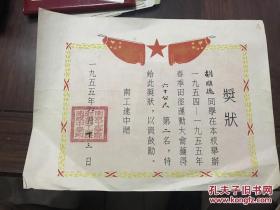 獎狀
同學在本校舉辦
一九五四—一九五五年
春季田徑運動大會獲得
六十公尺 第二名，特
給此獎狀，以資鼓勵。
南工速中贈
一九五五年 月 日